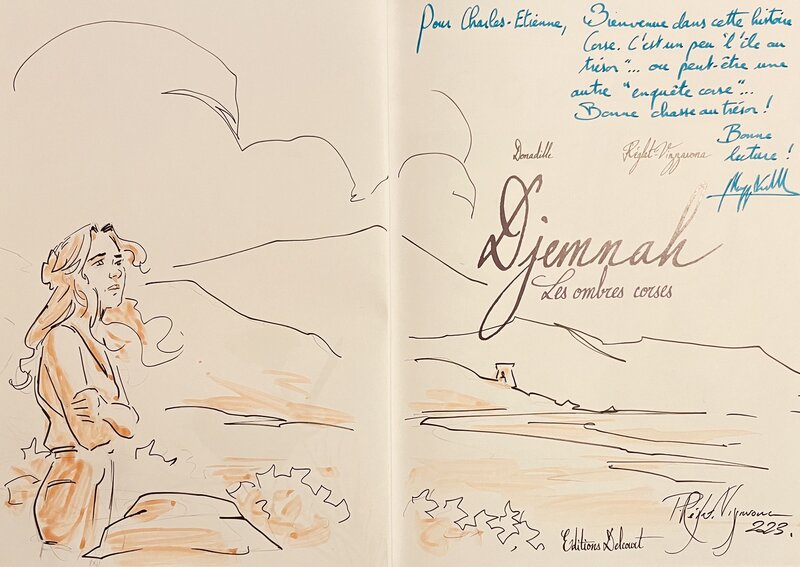 Pour Charles-Etienne, Bienvenue dans cette histoire
Corse. C'est un peu "l'île au
trésor"... ou peut-être une
autre "enquête corse"...
Bonne chasse au trésor !
Bonne
lecture !
Donadille Réglat-Vizzavona
Djemnah
Les ombres corses
Editions Delcourt